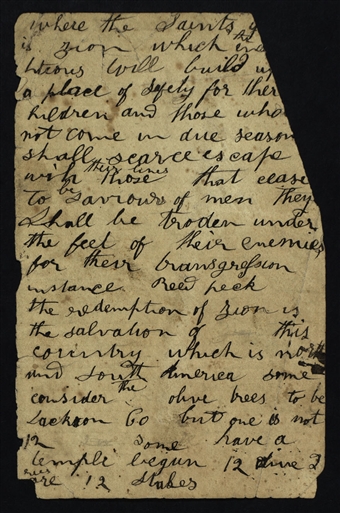 where the Saints g
is zion which the
hteous will build up
a place of Safety for ther
hildren and those who
not come in due season
shall scarce escape
with their lives those that cease
to be Saviours of men they
Shall be troden under
the feet of their enemies
for their transgression
instance Reed peck
the redemption of zion is
the salvation of this
country which is north
and South America some
consider the olive trees to be
Jackson Co but one is not
12 some have a
temple begun 12 olive
trees are 12 stakes